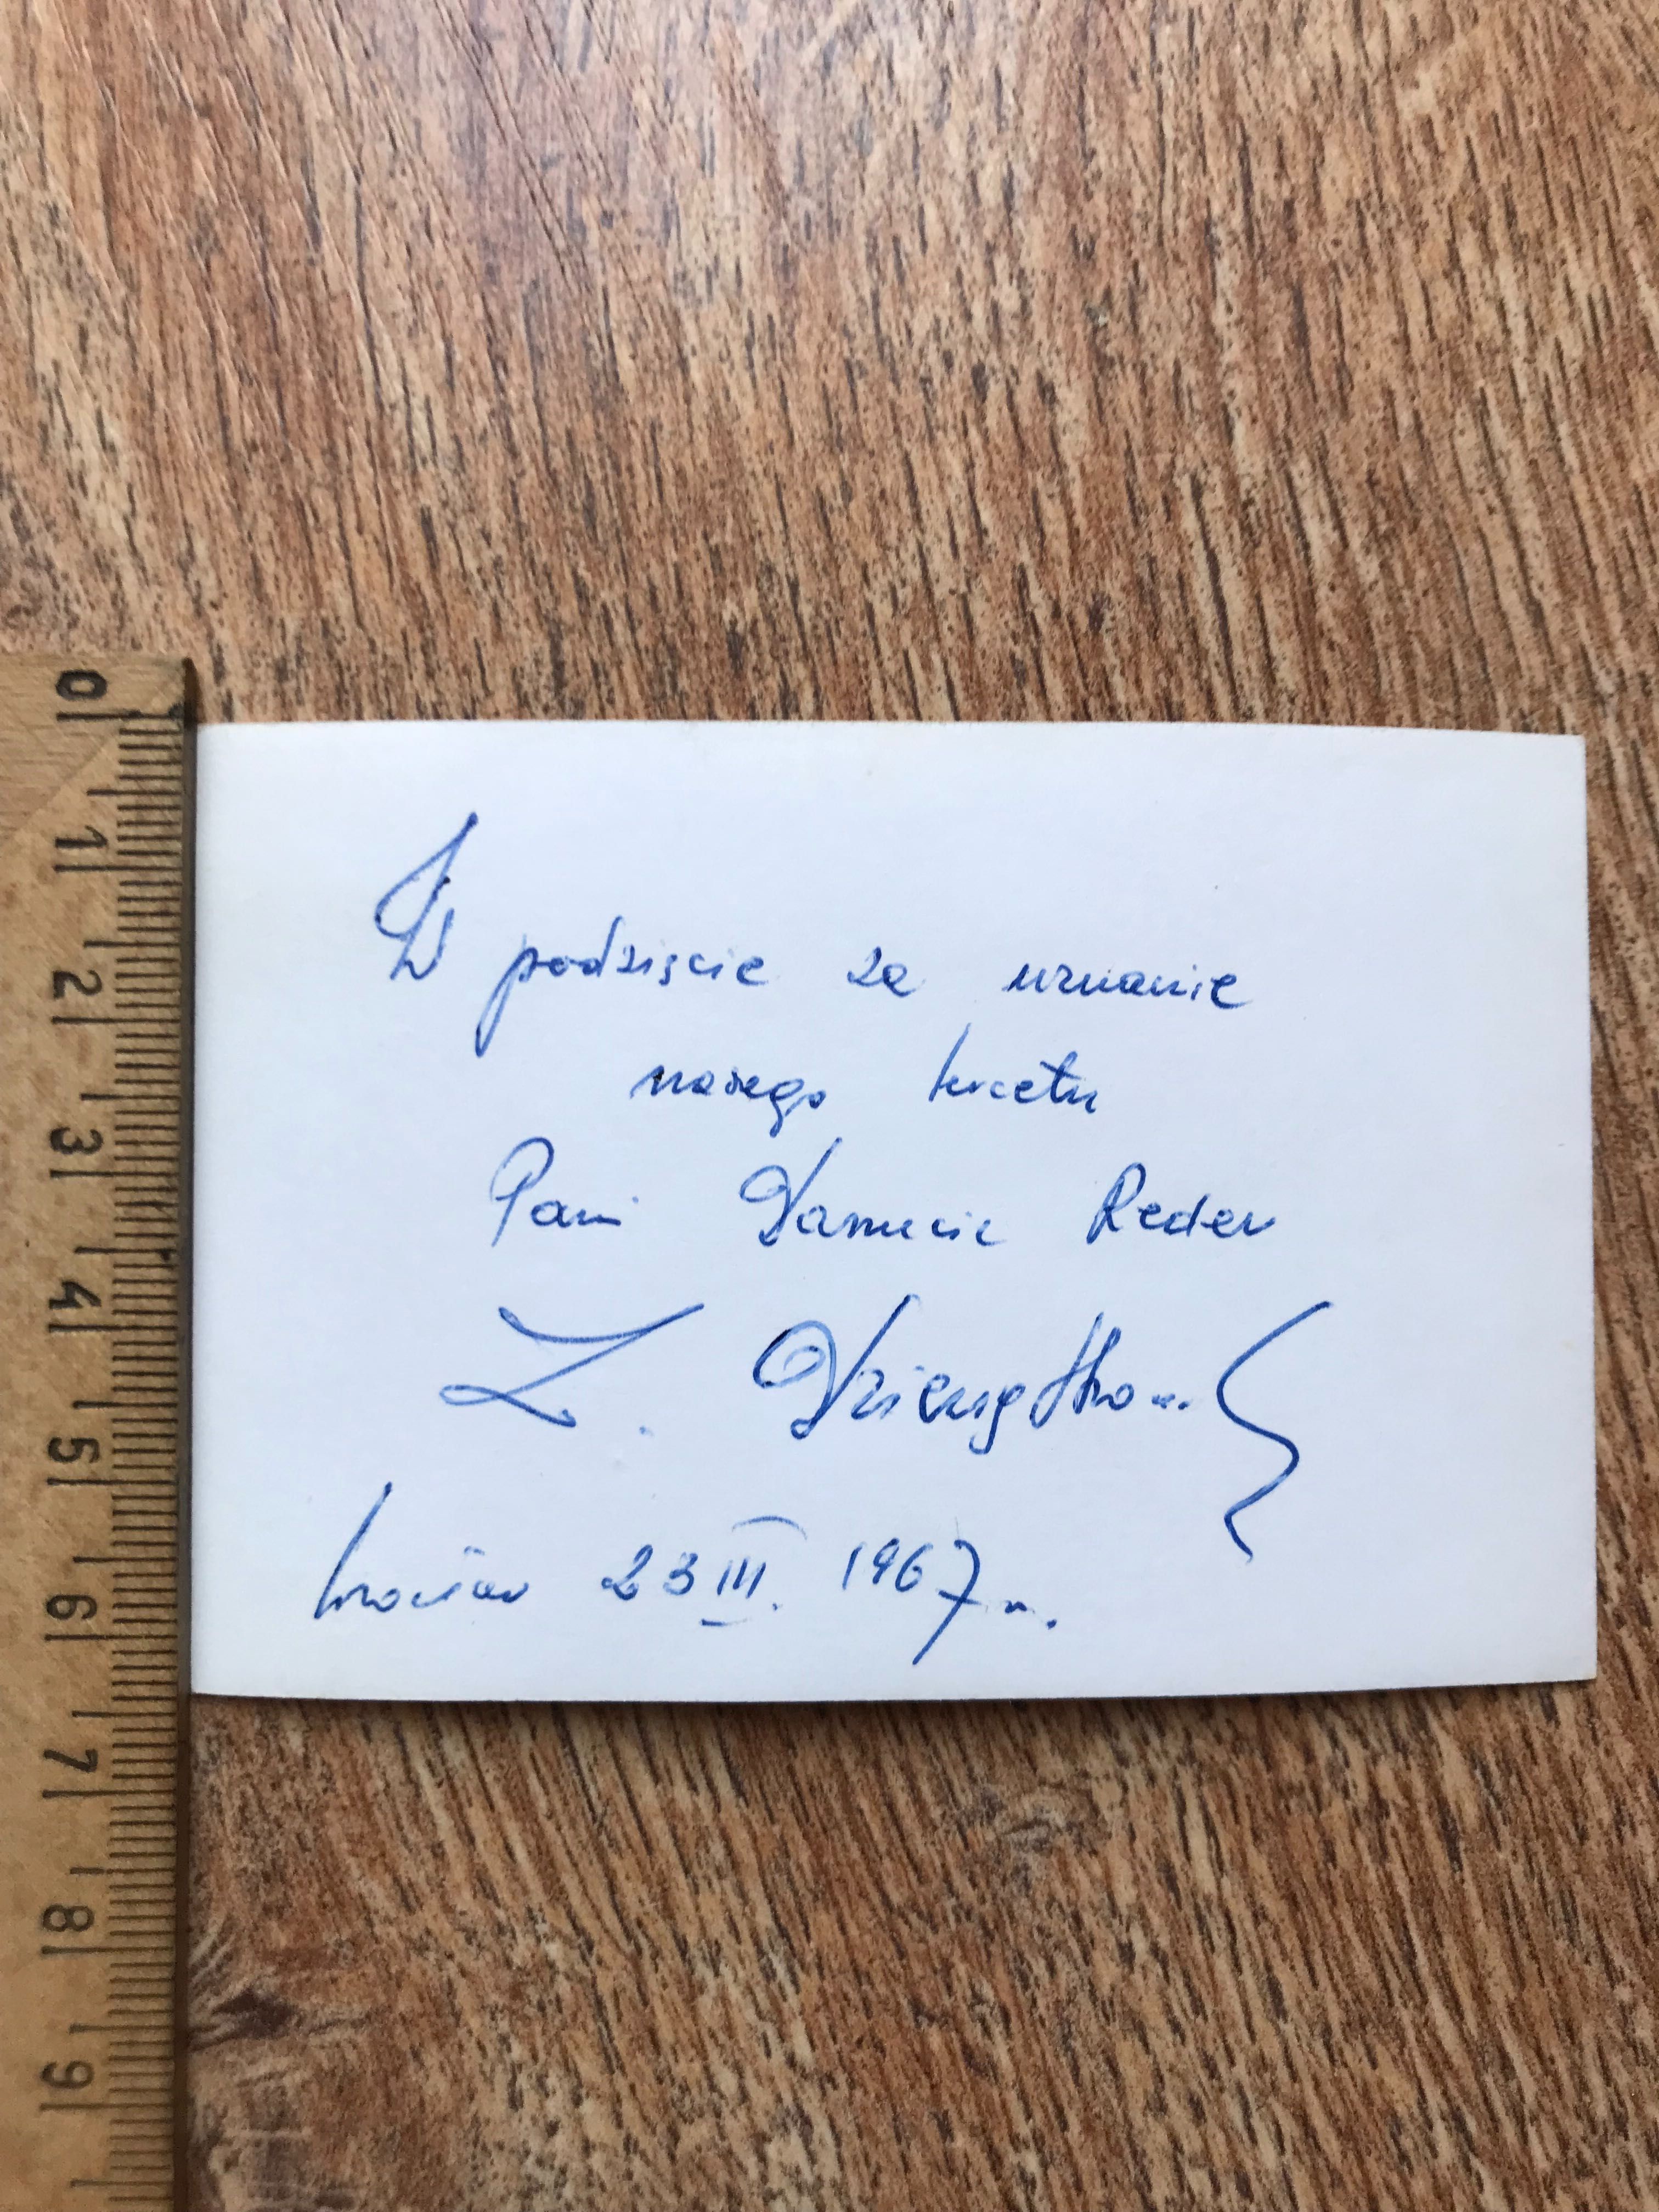 W podzięce za uznanie
naszego kwartetu
Pani Danucie Reder
Z.
Wrocław 23 III. 1967 r.
0 1 2 3 4 5 6 7 8 9